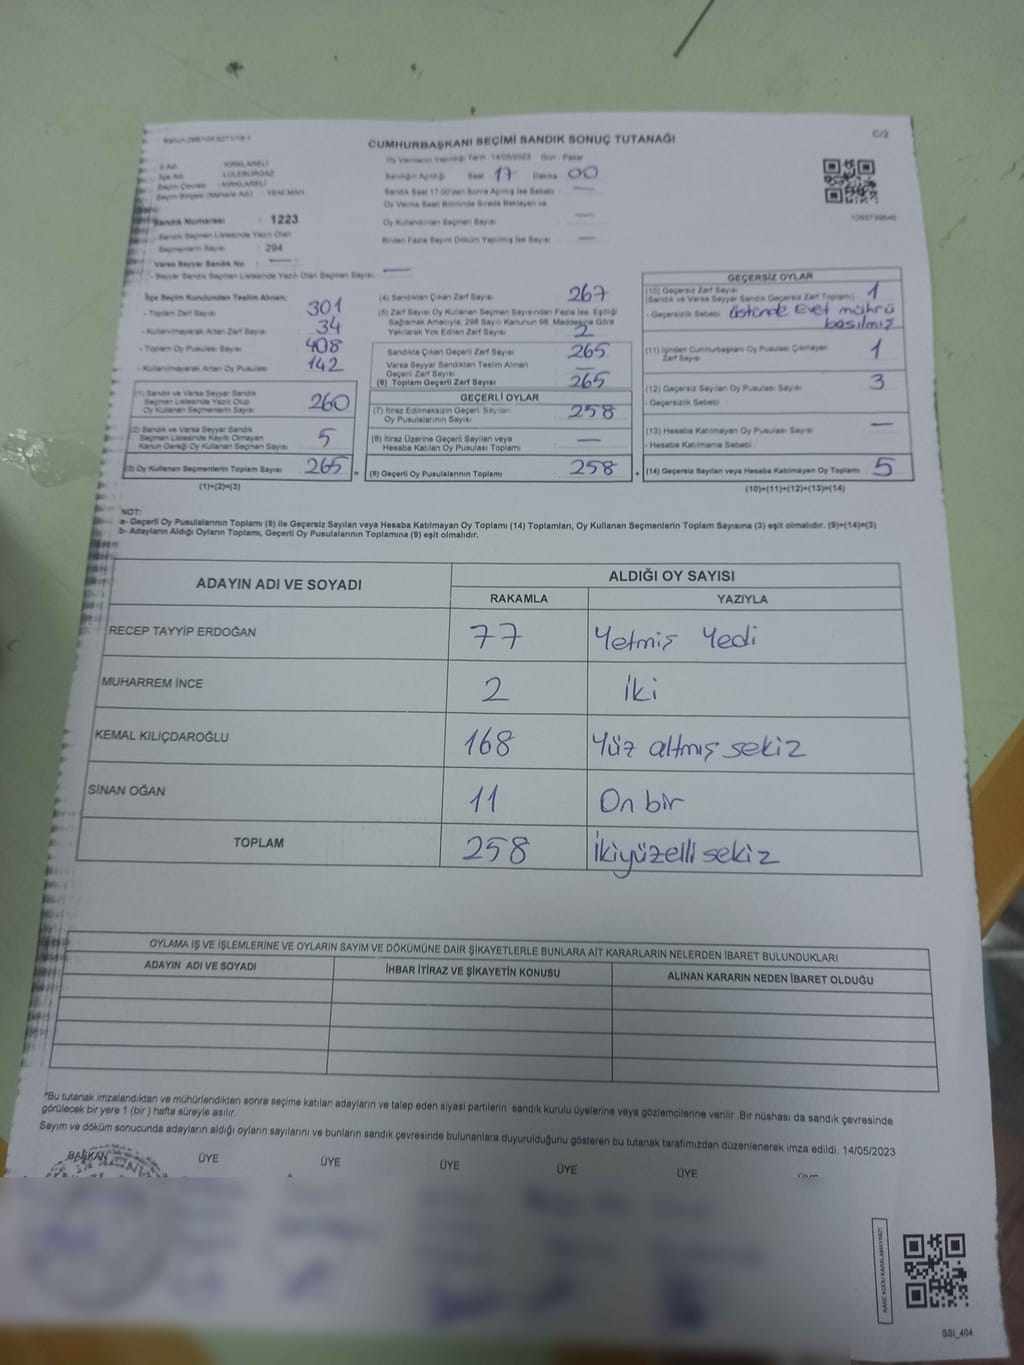 Kanun:298/105-6271/19-1
C/2
CUMHURBAŞKANI SEÇİMİ SANDIK SONUÇ TUTANAĞI
Oy Vermenin Yapıldığı Tarih : 14/05/2023 Gün : Pazar
İl Adı : KIRKLARELİ
İlçe Adı : LÜLEBURGAZ
Seçim Çevresi : KIRKLARELİ
Seçim Bölgesi (Mahalle Adı) : YENİ MAH.
Sandığın Açıldığı Saat 17 Dakika 00
Sandık Saat 17:00'den Sonra Açılmış İse Sebebi : —
Oy Verme Saati Bitiminde Sırada Bekleyen ve
Oy Kullandırılan Seçmen Sayısı : —
Birden Fazla Sayım Döküm Yapılmış İse Sayısı : —
Sandık Numarası : 1223
- Sandık Seçmen Listesinde Yazılı Olan
Seçmenlerin Sayısı : 294
Varsa Seyyar Sandık No : —
- Seyyar Sandık Seçmen Listesinde Yazılı Olan Seçmen Sayısı: —
İlçe Seçim Kurulundan Teslim Alınan;
- Toplam Zarf Sayısı : 301
- Kullanılmayarak Artan Zarf Sayısı : 34
- Toplam Oy Pusulası Sayısı : 408
- Kullanılmayarak Artan Oy Pusulası : 142
(1) Sandık ve Varsa Seyyar Sandık
Seçmen Listesinde Yazılı Olup
Oy Kullanan Seçmenlerin Sayısı : 260
(2) Sandık ve Varsa Seyyar Sandık
Seçmen Listesinde Kayıtlı Olmayan
Kanun Gereği Oy Kullanan Seçmen Sayısı : 5
(3) Oy Kullanan Seçmenlerin Toplam Sayısı : 265
(1)+(2)=(3)
(4) Sandıktan Çıkan Zarf Sayısı : 267
(5) Zarf Sayısı Oy Kullanan Seçmen Sayısından Fazla İse, Eşitliği
Sağlamak Amacıyla, 298 Sayılı Kanunun 98. Maddesine Göre
Yakılarak Yok Edilen Zarf Sayısı : 2
Sandıkta Çıkan Geçerli Zarf Sayısı : 265
Varsa Seyyar Sandıktan Teslim Alınan
Geçerli Zarf Sayısı : —
(6) Toplam Geçerli Zarf Sayısı : 265
GEÇERLİ OYLAR
(7) İtiraz Edilmeksizin Geçerli Sayılan
Oy Pusulalarının Sayısı : 258
(8) İtiraz Üzerine Geçerli Sayılan veya
Hesaba Katılan Oy Pusulası Toplamı : —
(9) Geçerli Oy Pusulalarının Toplamı : 258
GEÇERSİZ OYLAR
(10) Geçersiz Zarf Sayısı
(Sandık ve Varsa Seyyar Sandık Geçersiz Zarf Toplamı) : 1
- Geçersizlik Sebebi : üstünde Evet mührü
basılmış
(11) İçinden Cumhurbaşkanı Oy Pusulası Çıkmayan
Zarf Sayısı : 1
(12) Geçersiz Sayılan Oy Pusulası Sayısı : 3
- Geçersizlik Sebebi :
(13) Hesaba Katılmayan Oy Pusulası Sayısı : —
- Hesaba Katılmama Sebebi :
(14) Geçersiz Sayılan veya Hesaba Katılmayan Oy Toplamı : 5
(10)+(11)+(12)+(13)=(14)
NOT:
a- Geçerli Oy Pusulalarının Toplamı (9) ile Geçersiz Sayılan veya Hesaba Katılmayan Oy Toplamı (14) Toplamları, Oy Kullanan Seçmenlerin Toplam Sayısına (3) eşit olmalıdır. (9)+(14)=(3)
b- Adayların Aldığı Oyların Toplamı, Geçerli Oy Pusulalarının Toplamına (9) eşit olmalıdır.
ADAYIN ADI VE SOYADI
ALDIĞI OY SAYISI
RAKAMLA YAZIYLA
RECEP TAYYİP ERDOĞAN 77 Yetmiş Yedi
MUHARREM İNCE 2 İki
KEMAL KILIÇDAROĞLU 168 Yüz altmış sekiz
SİNAN OĞAN 11 On bir
TOPLAM 258 İkiyüzelli sekiz
OYLAMA İŞ VE İŞLEMLERİNE VE OYLARIN SAYIM VE DÖKÜMÜNE DAİR ŞİKAYETLERLE BUNLARA AİT KARARLARIN NELERDEN İBARET BULUNDUKLARI
ADAYIN ADI VE SOYADI İHBAR İTİRAZ VE ŞİKAYETİN KONUSU ALINAN KARARIN NEDEN İBARET OLDUĞU
*Bu tutanak imzalandıktan ve mühürlendikten sonra seçime katılan adayların ve talep eden siyasi partilerin sandık kurulu üyelerine veya gözlemcilerine verilir. Bir nüshası da sandık çevresinde
görülecek bir yere 1 (bir) hafta süreyle asılır.
Sayım ve döküm sonucunda adayların aldığı oyların sayılarını ve bunların sandık çevresinde bulunanlara duyurulduğunu gösteren bu tutanak tarafımızdan düzenlenerek imza edildi. 14/05/2023
BAŞKAN ÜYE ÜYE ÜYE ÜYE ÜYE ÜYE
KARE KODU KARALAMAYINIZ!
SSI_404